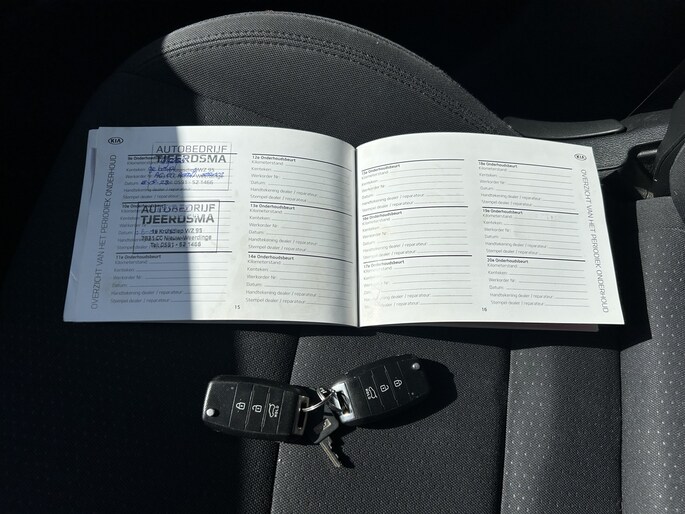 KIA
OVERZICHT VAN HET PERIODIEK ONDERHOUD
AUTOBEDRIJF
TJEERDSMA
9e Onderhoudsbeurt
Kenteken:
Werkorder Nr:
Datum:
AUTOBEDRIJF
TJEERDSMA
Nieuw-Weerdinge
11e Onderhoudsbeurt
Kilometerstand:
Kenteken:
Werkorder Nr:
Datum:
Handtekening dealer / reparateur:
Stempel dealer / reparateur:
12e Onderhoudsbeurt
Kilometerstand:
Kenteken:
Werkorder Nr:
Datum:
Handtekening dealer / reparateur:
Stempel dealer / reparateur:
13e Onderhoudsbeurt
Kilometerstand:
Kenteken:
Werkorder Nr:
Datum:
Handtekening dealer / reparateur:
Stempel dealer / reparateur:
14e Onderhoudsbeurt
Kilometerstand:
Kenteken:
Werkorder Nr:
Datum:
Handtekening dealer / reparateur:
Stempel dealer / reparateur:
15
15e Onderhoudsbeurt
Kilometerstand:
Kenteken:
Werkorder Nr:
Datum:
Handtekening dealer / reparateur:
Stempel dealer / reparateur:
16e Onderhoudsbeurt
Kilometerstand:
Kenteken:
Werkorder Nr:
Datum:
Handtekening dealer / reparateur:
Stempel dealer / reparateur:
17e Onderhoudsbeurt
Kilometerstand:
Kenteken:
Werkorder Nr:
Datum:
Handtekening dealer / reparateur:
Stempel dealer / reparateur:
18e Onderhoudsbeurt
Kilometerstand:
Kenteken:
Werkorder Nr:
Datum:
Handtekening dealer / reparateur:
Stempel dealer / reparateur:
19e Onderhoudsbeurt
Kilometerstand:
Kenteken:
Werkorder Nr:
Datum:
Handtekening dealer / reparateur:
Stempel dealer / reparateur:
20e Onderhoudsbeurt
Kilometerstand:
Kenteken:
Werkorder Nr:
Datum:
Handtekening dealer / reparateur:
Stempel dealer / reparateur:
16
KIA
OVERZICHT VAN HET PERIODIEK ONDERHOUD